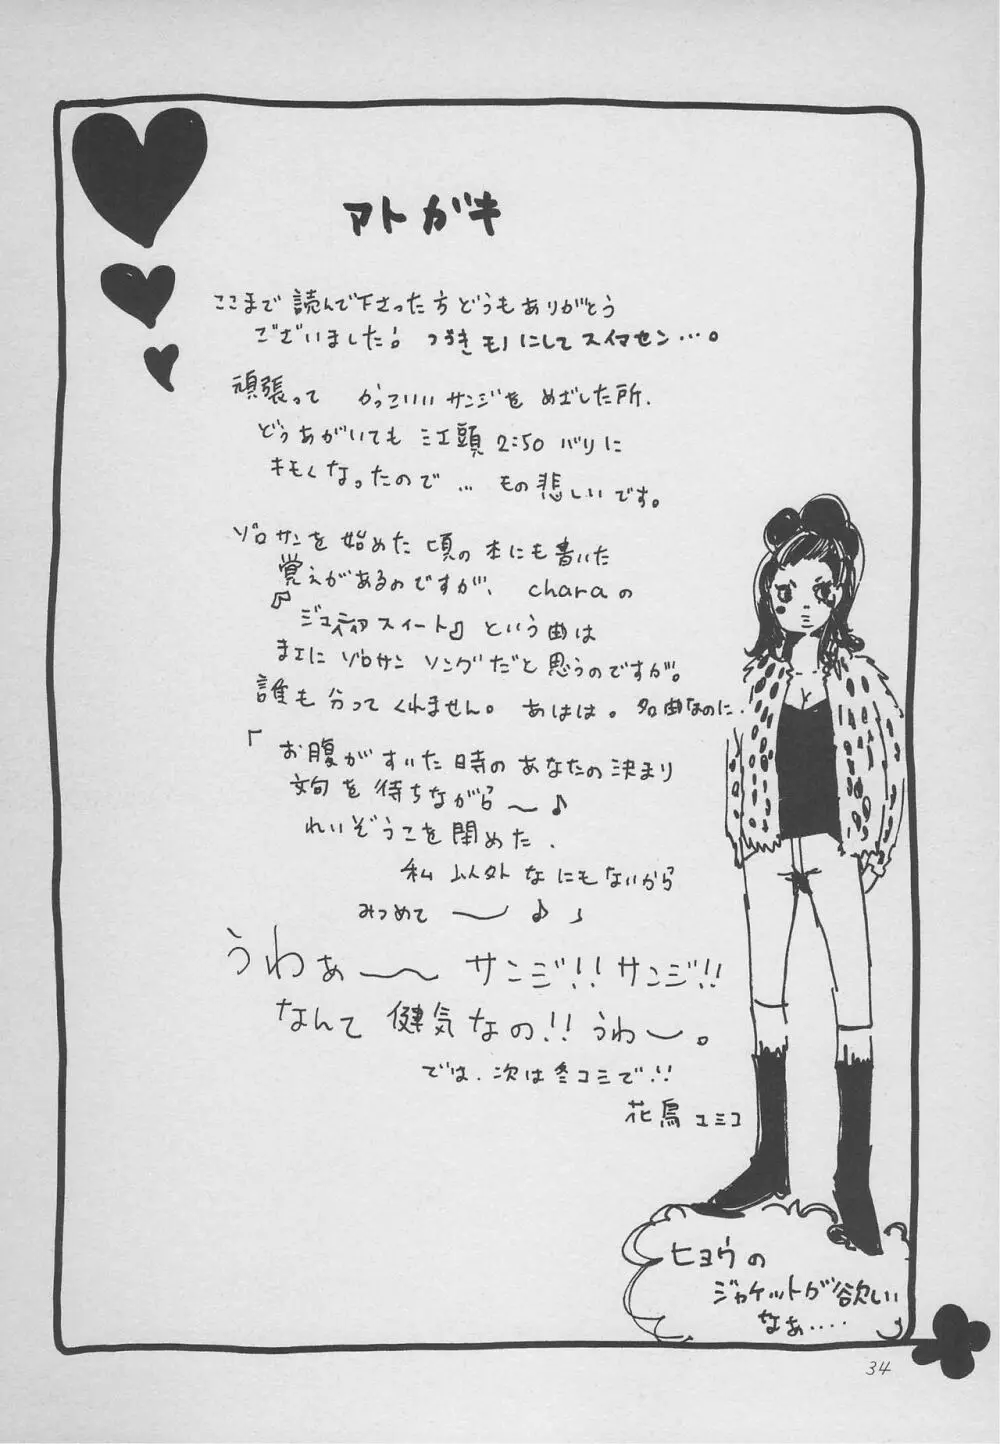 アトガキ
ここまで読んで下さった方どうもありがとう
ございました! つづきモノにしてスイマセン…。
頑張って かっこいいサンジを めざした所、
どうあがいても 江頭 2:50 バリに
キモくなったので … もの悲しいです。
ゾロサンを始めた頃の本にも書いた
覚えがあるのですが、 charaの
『ジュディア スィート』という曲は
まさに ゾロサン ソングだと思うのですが。
誰も分ってくれません。 あはは。名曲なのに、
「お腹がすいた時のあなたの決まり
文句を待ちながら〜♪
れいぞうこを閉めた、
私以外なにもないから
みつめて 〜♪」
うわぁ〜 サンジ!!サンジ!!
なんて 健気なの!! うわー。
では、次は冬コミで!!
花鳥ユミコ
ヒョウの
ジャケットが欲しい
なぁ....
34